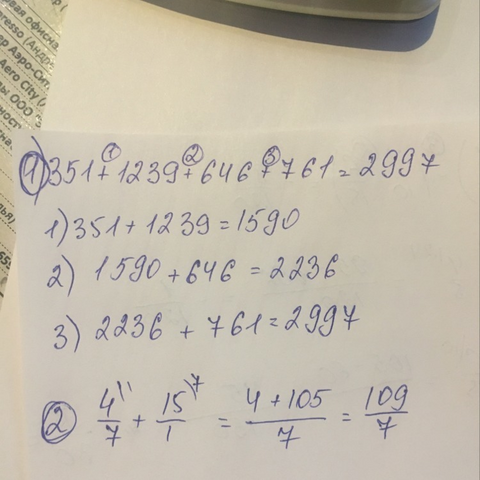 вая офисна
resso (Андре
ер Аэро-Сит
Aero City (
ды ООО
1) 351 + 1239 + 646 + 761 = 2997
① ② ③
1) 351 + 1239 = 1590
2) 1590 + 646 = 2236
3) 2236 + 761 = 2997
② 4/7 \1 + 15/1 \7 = (4 + 105)/7 = 109/7